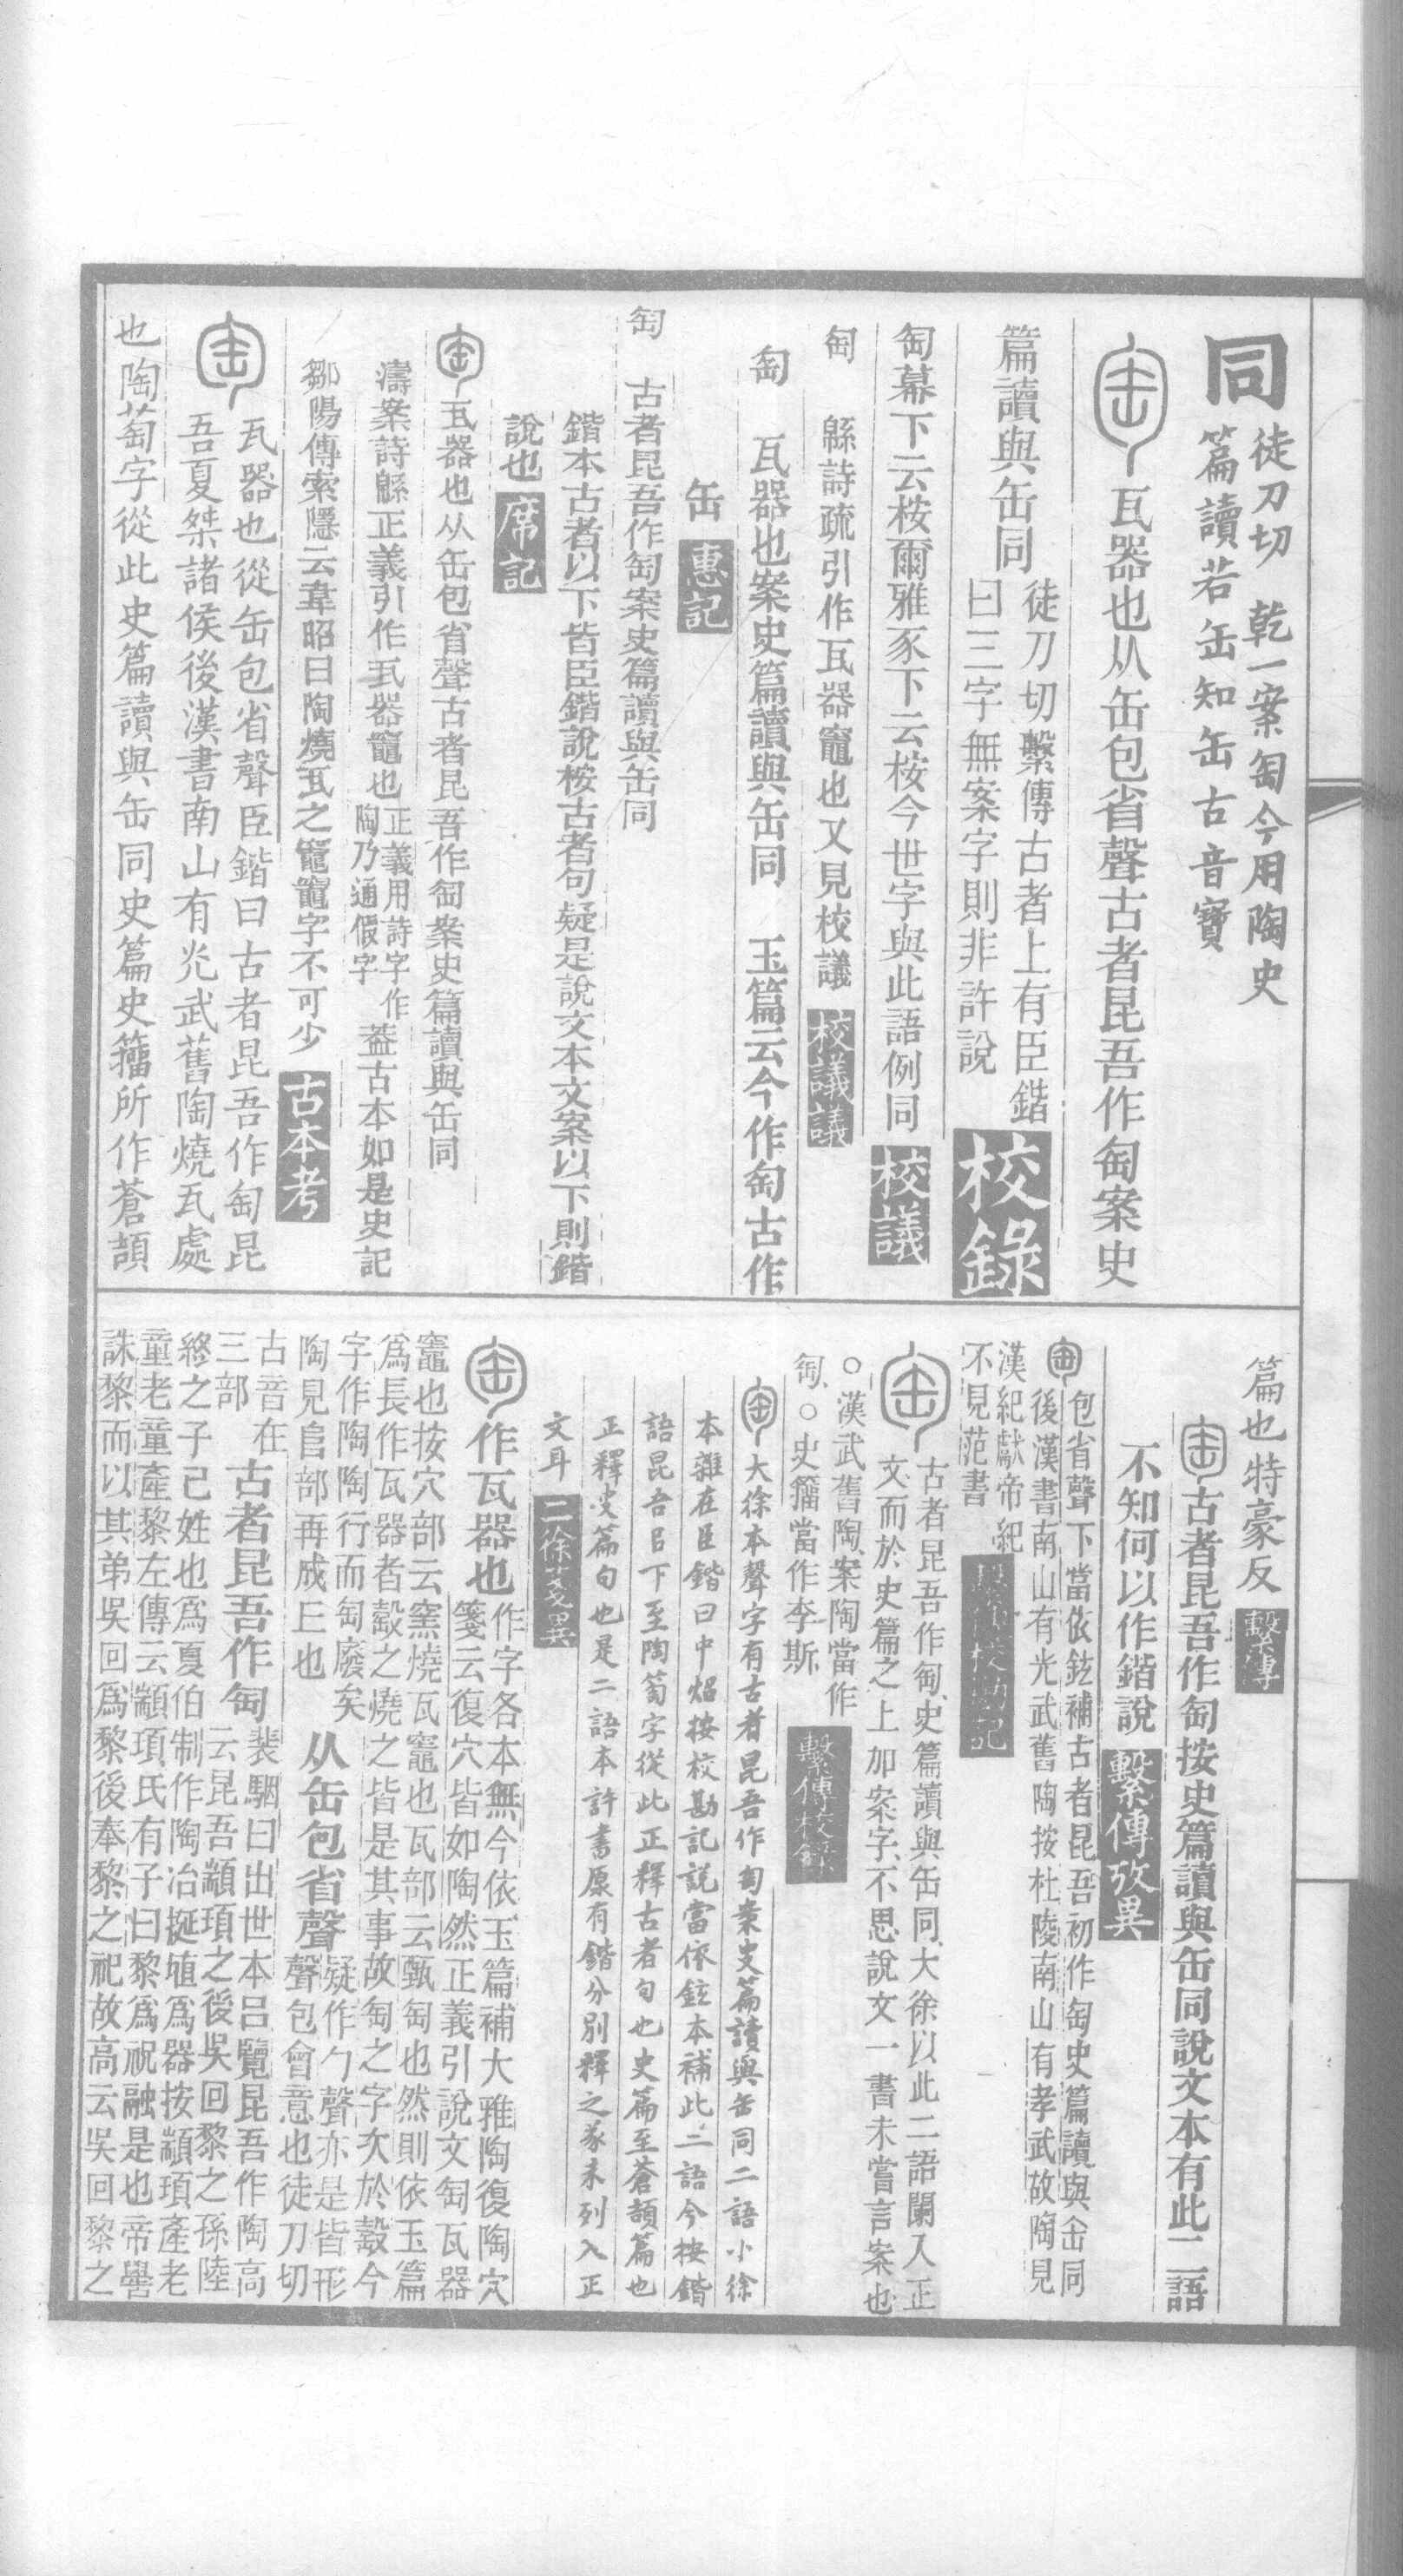 同
徒刀切　乾一案匋今用陶史
篇讀若缶知缶古音寶
瓦器也从缶包省聲古者昆吾作匋案史
篇讀與缶同
徒刀切繫傳古者上有臣鍇
曰三字無案字則非許說
校錄
匋幕下云桉爾雅豕下云桉今世字與此語例同
校議
匋　緜詩疏引作瓦器竈也又見校議
校議議
匋　瓦器也案史篇讀與缶同　玉篇云今作匋古作
缶
惠記
匋　古者昆吾作匋案史篇讀與缶同
鍇本古者以下皆臣鍇說桉古者句疑是說文本文案以下則鍇
說也
席記
瓦器也从缶包省聲古者昆吾作匋案史篇讀與缶同
濤案詩緜正義引作瓦器竈也
正義用詩字作
陶乃通假字
蓋古本如是史記
鄒陽傳索隱云韋昭曰陶燒瓦之竈竈字不可少
古本考
瓦器也從缶包省聲臣鍇曰古者昆吾作匋昆
吾夏桀諸侯後漢書南山有光武舊陶燒瓦處
也陶萄字從此史篇讀與缶同史篇史籀所作蒼頡
篇也特豪反
繫傳
古者昆吾作匋按史篇讀與缶同說文本有此二語
不知何以作鍇說
繫傳攷異
包省聲下當依鉉補古者昆吾初作匋史篇讀與缶同
後漢書南山有光武舊陶按杜陵南山有孝武故陶見
漢紀獻帝紀
不見范書
古者昆吾作匋史篇讀與缶同大徐以此二語闌入正
文而於史篇之上加案字不思說文一書未嘗言案也
○漢武舊陶案陶當作
匋○史籀當作李斯
繫傳校錄
大徐本聲字有古者昆吾作匋案史篇讀與缶同二語小徐
本雜在臣鍇曰中炤按校勘記說當依鉉本補此二語今按鍇
語昆吾㠯下至陶萄字從此正釋古者句也史篇至蒼頡篇也
正釋史篇句也是二語本許書原有鍇分別釋之㒸未列入正
文耳
二徐箋異
作瓦器也
作字各本無今依玉篇補大雅陶復陶穴
箋云復穴皆如陶然正義引說文匋瓦器
竈也按穴部云窯燒瓦竈也瓦部云甄匋也然則依玉篇
爲長作瓦器者㲉之燒之皆是其事故匋之字次於㲉今
字作陶陶行而匋廢矣
陶見𨸏部再成丘也
从缶包省聲
疑作勹聲亦是皆形
聲包會意也徒刀切
古音在
三部
古者昆吾作匋
裴駰曰出世本呂覽昆吾作陶高
云昆吾顓頊之後吳回黎之孫陸
終之子己姓也爲夏伯制作陶冶埏埴爲器按顓頊產老
童老童產黎左傳云顓頊氏有子曰黎爲祝融是也帝嚳
誅黎而以其弟吳回爲黎後奉黎之祀故高云吳回黎之